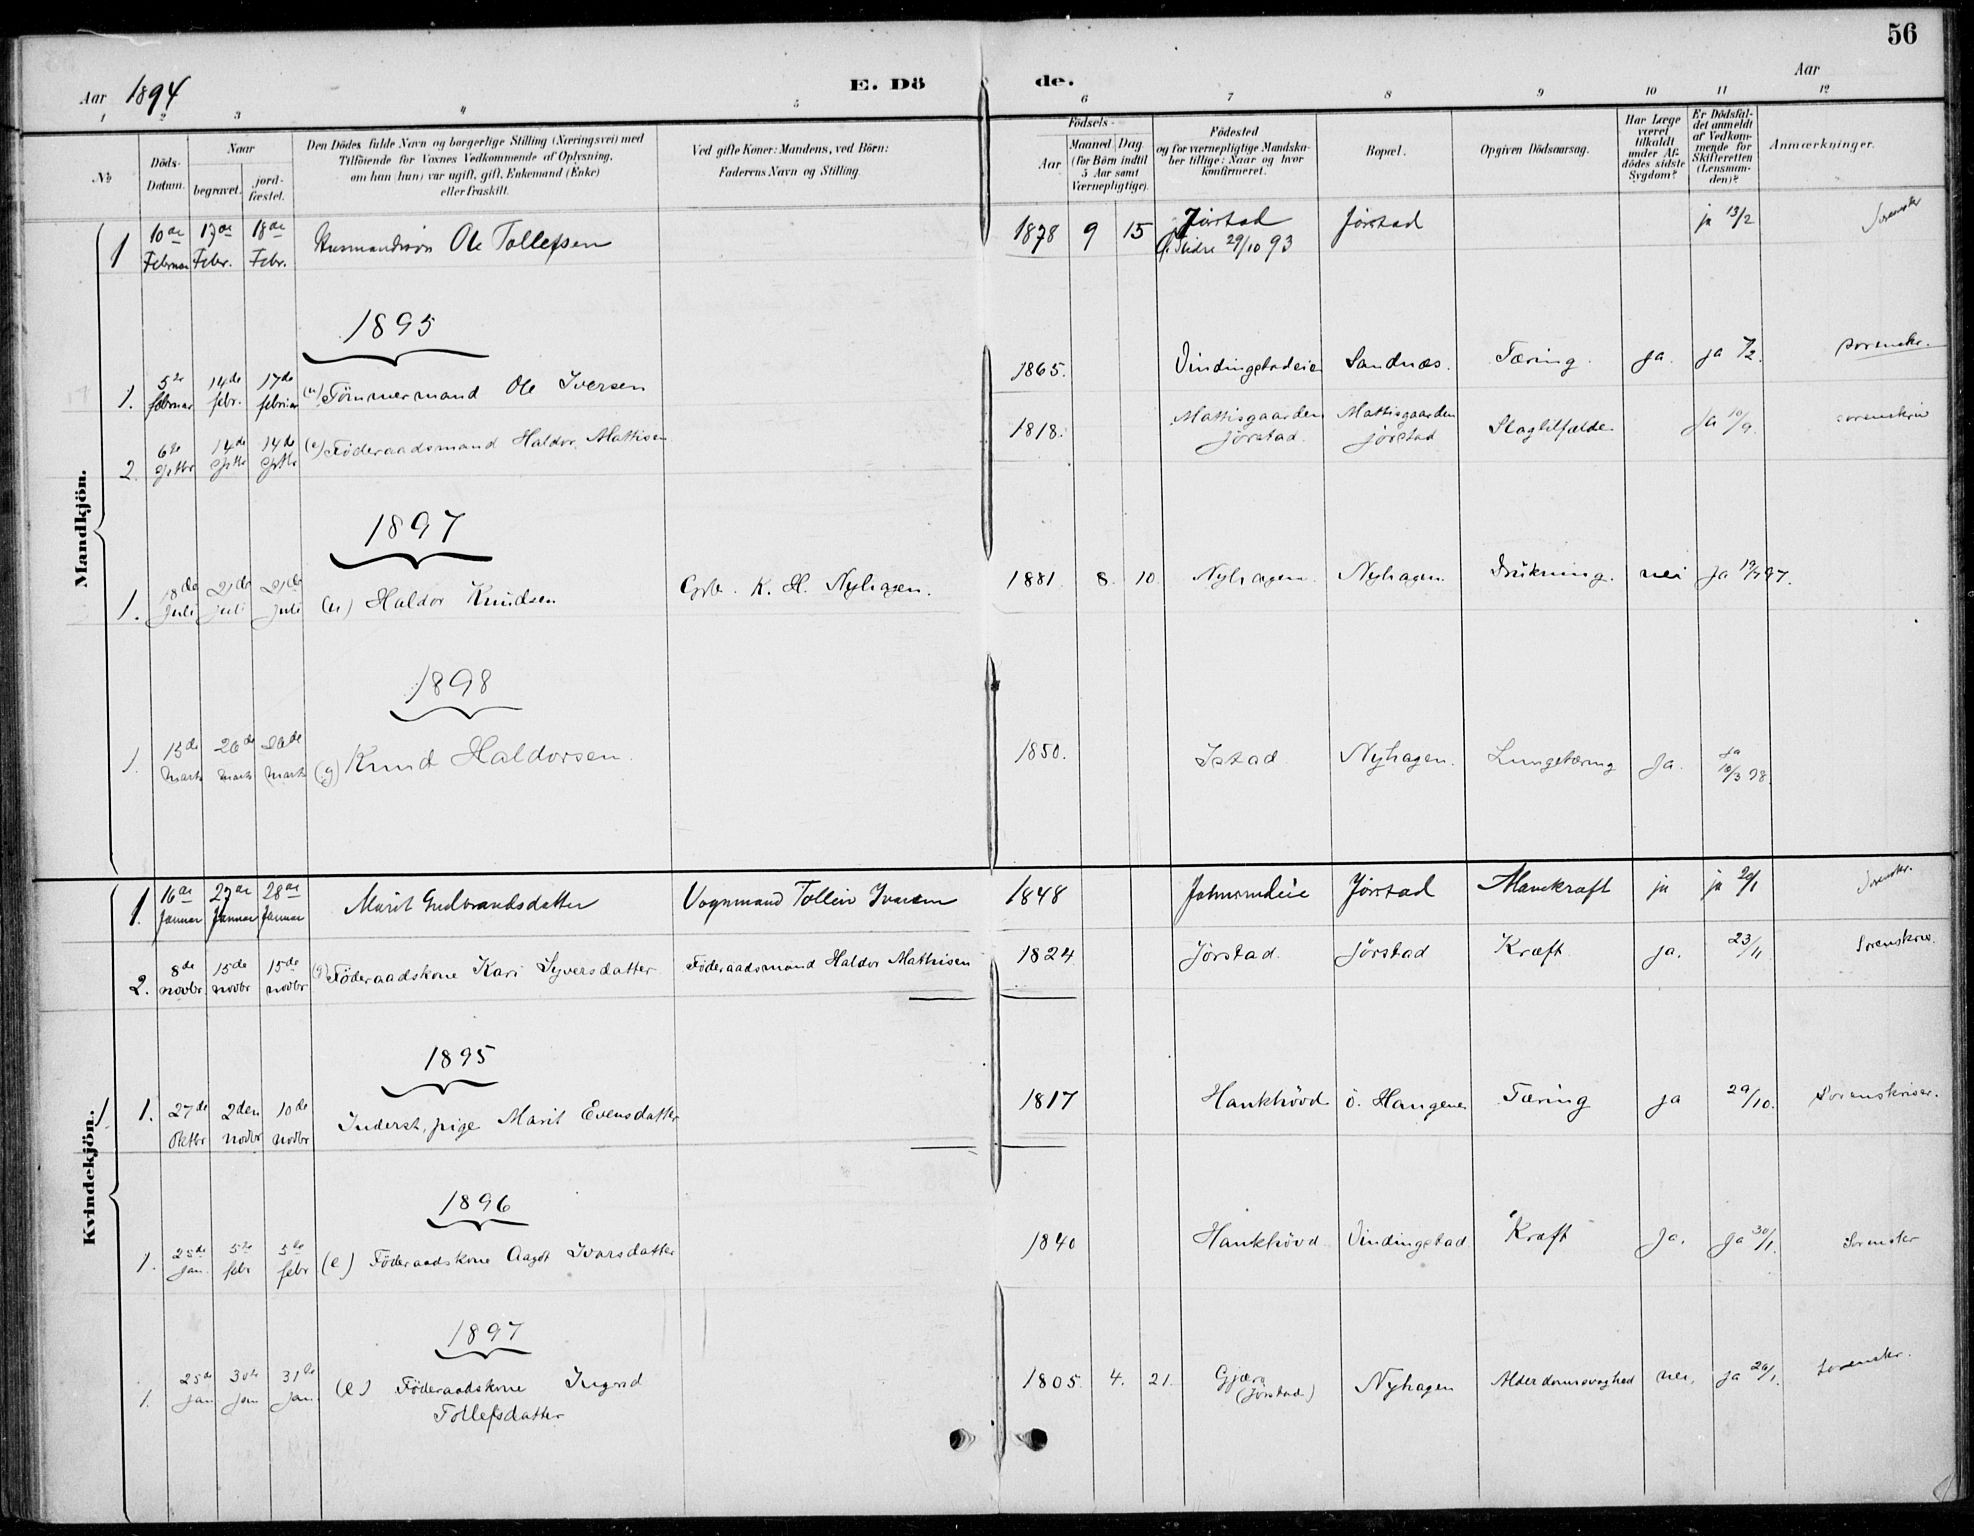 56
Aar 1894
E. Dö de.
Aar
1 2 3 4 5 6 7 8 9 10 11 12
No
Döds-Datum.
Naar
begravet.
jord-fæstet.
Den Dödes fulde Navn og borgerlige Stilling (Næringsvei) med
Tilföiende for Voxnes Vedkommende af Oplysning,
om han (hun) var ugift, gift, Enkemand (Enke)
eller fraskilt.
Ved gifte Koner: Mandens, ved Börn:
Faderens Navn og Stilling.
Födsels-
Aar
Maaned Dag
(for Börn indtil
5 Aar samt
Værnepligtige).
Födested
og for værnepligtige Mandska-
ber tillige: Naar og hvor
konfirmeret.
Bopæl.
Opgiven Dödsaarsag.
Har Læge
været
tilkaldt
under Af-
dödes sidste
Sygdom?
Er Dödsfal-
det anmeldt
af Vedkom-
mende for
Skifteretten
(Lensman-
den)?
Anmærkninger.
Mandkjön.
1 10de Februar 17de Febr. 18de Febr. Husmandssön Ole Tollefsen 1878 9 15 Jörstad Jörstad ja 13/2 Sorenskr
Ø. Slidre 29/10 93
1895
1. 5te februar 14de febr. 17de februar (u) Tömmermand Ole Iversen 1865. Vindingstadeie Sandnæs. Tæring. ja. ja 7/2. Sorenskr.
2. 6te Septbr 14de Septbr 14de Septbr (e) Föderaadsmand Haldor Mattisen. 1818. Mattisgaarden Jörstad. Mattisgaarden Jörstad Slagtilfælde Ja 10/9. sorenskriv
1897
1. 18de Juli 21de juli 21de juli (u) Haldor Knudsen Grb. K. H. Nyhagen. 1881. 8. 10. Nyhagen. Nyhagen. Drukning. nei Ja 19/7 97.
1898
1. 15de Marts 26de Marts 26de Marts (g) Knud Haldorsen. 1850. Istad Nyhagen. Lungetæring Ja. ja 18/3 98.
Kvindekjön.
1. 16de Januar 27de Januar 28de Januar Marit Gudbrandsdatter Vognmand Tollein Ivarsen 1848 Jörstad Mavekræft ja ja 20/1 Sorenskr.
2. 8de novbr 15de novbr 15de novbr (g) Föderaadskone Kari Syversdatter Föderaadsmand Haldor Mathisen 1824 Jörstad. Jörstad Kræft ja. 23/11 Sorenskriv.
1895
1. 27de Oktbr 2den Novbr 10de Novbr Inderst, pige Marit Evensdatter 1817 Haukhövd ö. Haugene Tæring ja 29/10. Sorenskriver.
1896
1. 25de Jan. 5te febr 5te febr (e) Föderaadskone Aagot Ivarsdatter 1840 Haukhövd. Vindingstad Kræft ja. ja 30/1. Sorenskr
1897
1. 25de Jan 30te Jan 31te Jan. (e) Föderaadskone Ingrid 1805. 4. 21. (Jörstad) Nyhagen Alderdomssvaghed nei, ja 26/1. Sorenskr.
Tollefsdatter